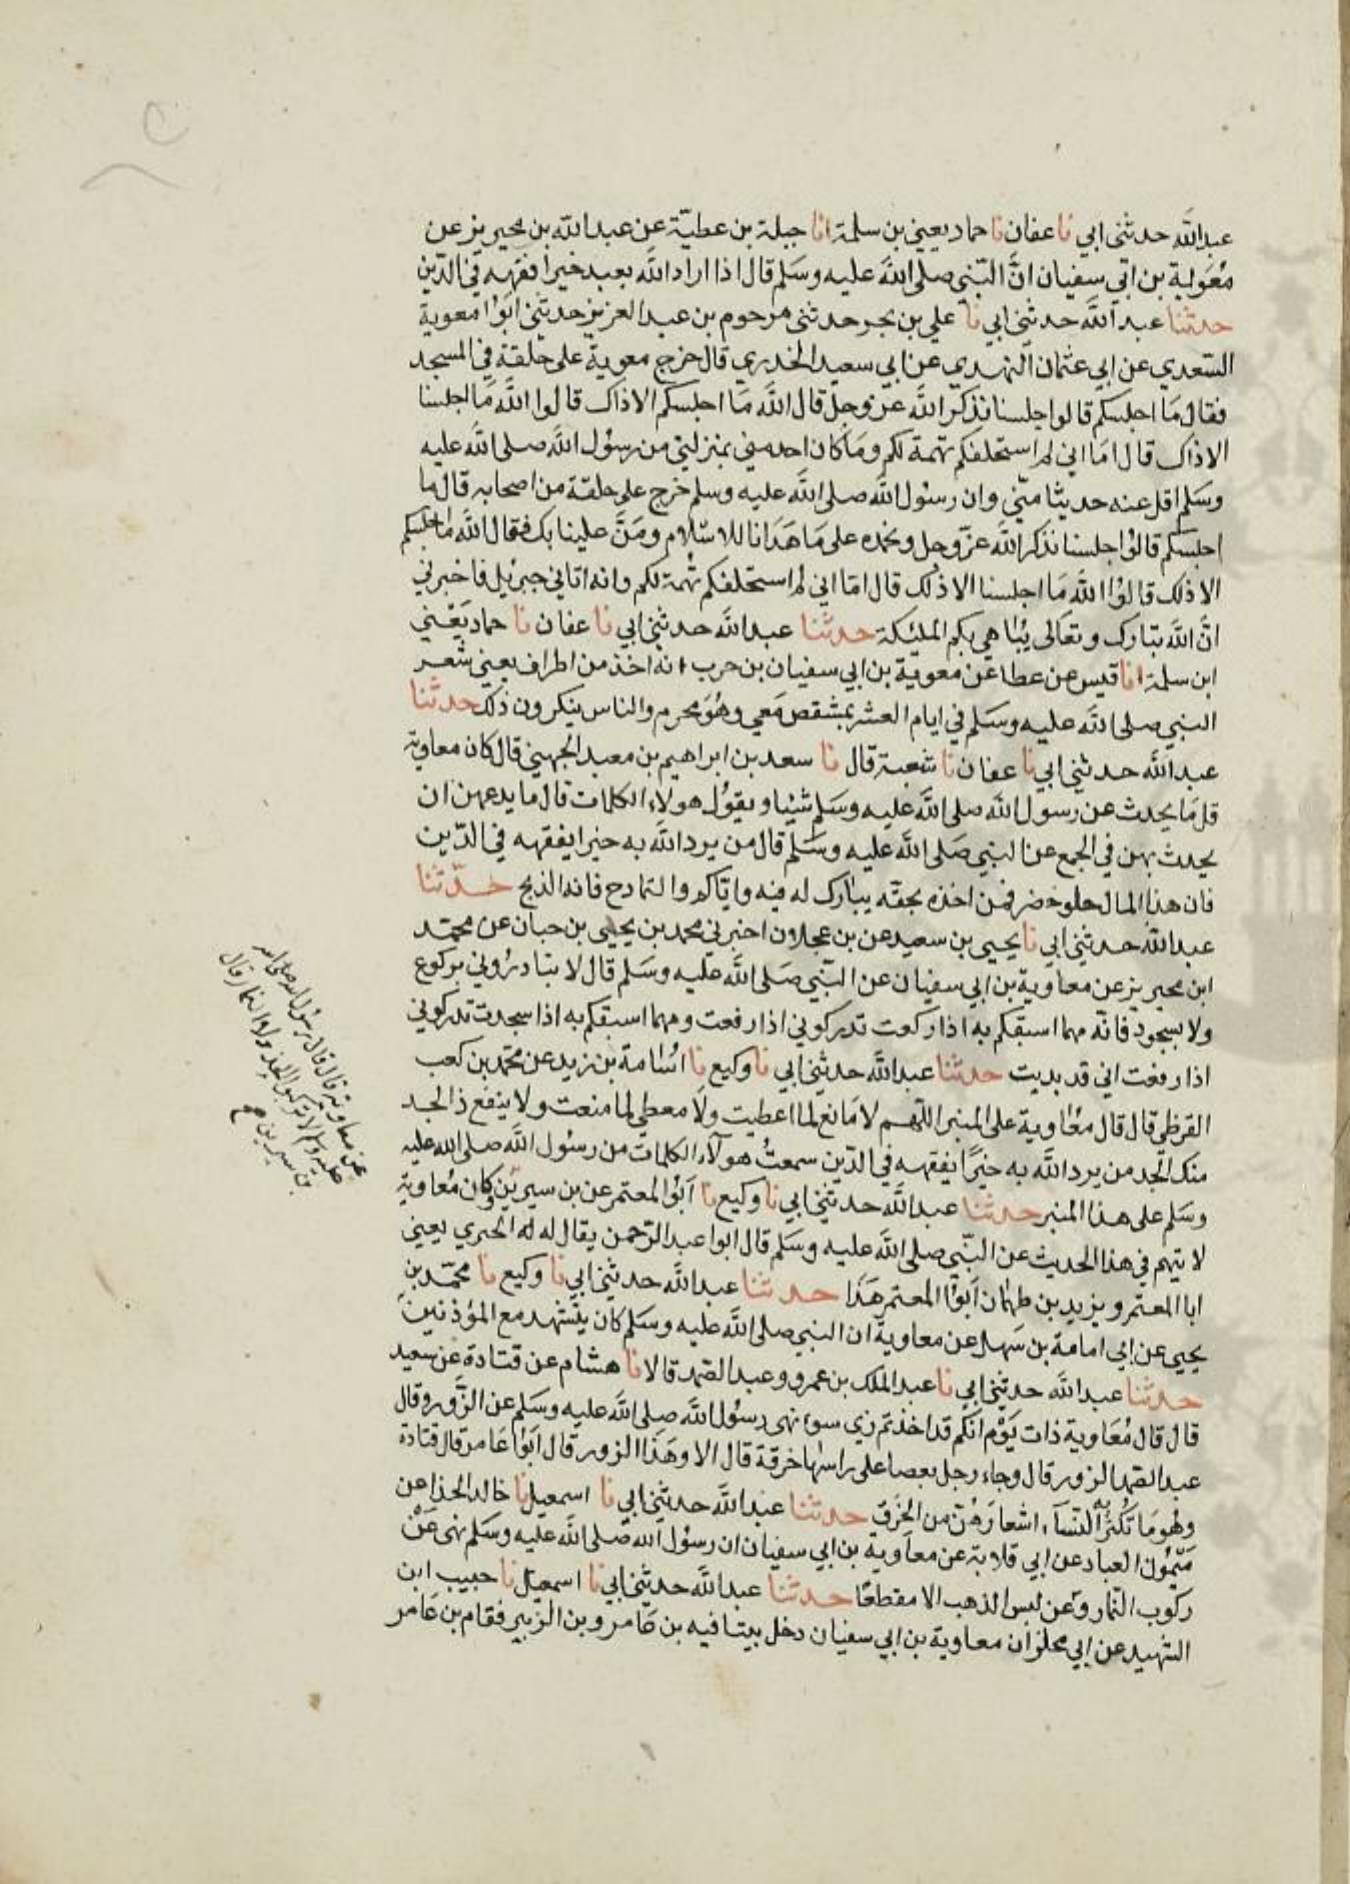 عبدالله حدثني ابي نا عفان نا حماد يعني بن سلمة انا جبلة بن عطيّة عن عبد الله بن محيريز عن
معوية بن ابي سفيان انَّ النّبي صلى الله عليه وسَلم قال اذا اراد الله بعبد خيرا فقهه في الدّين
حدثنا عبد الله حدثني ابي نا علي بن بحر حدثني مرحوم بن عبد العزيز حدثني ابَوا معوية
السّعدي عن ابي عثمان النهدي عن ابي سعيد الخدري قال خرج معوية على حلقة في المسجد
فقال مَا اجلسكم قالوا جلسنا نذكر الله عزّ وجلّ قال الله مَا اجلسكم الا ذاك قالوا الله مَا اجلسنا
الا ذاك قال امَا اني لم استحلفكم تهمة لكم ومَا كان احد مني بمنزلتي من رسُول الله صلى الله عليه
وسَلم اقل عنه حديثا منّي وان رسول الله صلى الله عليه وسلم خرج على حلقة من اصحابه قال ما
اجلسكم قالوا جلسنا نذكر الله عزّ وجل ونحمده على مَا هَدَانا للاسلام ومَنَّ علينا بك فقال الله ما اجلسكم
الا ذلك قالوا الله مَا اجلسنا الا ذلك قال امّا اني لم استحلفكم تهمة لكم وانه اتاني جبرئيل فاخبرني
انَّ الله تبارك وتعَالى يُبَاهي بكم المليٓكة حدثنا عبد الله حدثني ابي نا عفان نا حماد يَعْني
ابن سلمة انا قيس عن عطا عن معوية بن ابي سفيان بن حرب انه اخذ من اطراف يعني شعر
النبي صلى الله عليه وسَلم في ايام العشر بمشقص مَعي وهُوَ محرم والناس ينكرون ذلك حدثنا
عبد الله حدثني ابي نا عفان نا شعبة قال نا سعد بن ابراهيم بن معبد الجهني قال كان معاوية
قل مَا يحدث عن رسول الله صلى الله عليه وسَلم شيئا ويقول هولاء الكلمات قال ما يدعهن ان
يحدث بهن في الجمع عن النبي صَلى الله عليه وسَلم قال من يرد الله به خيرا يفقهه في الدّين
فان هذا المال حلو خضر فمن اخذه بحقّه يبارك له فيه واياكم والتمادح فانه الذبح حدّثنا
عبد الله حدثني ابي نا يحيى بن سعيد عن بن عجلان اخبرني محمد بن يحيى بن حبان عن محمّد
ابن محيريز عن معاوية بن ابي سفيان عن النّبي صَلى الله عليه وسَلم قال لا تبادروني بركوع
ولا بسجود فانّه مهما اسبقكم به اذا ركعت تدركوني اذا رفعت ومهما اسبقكم به اذا سجدت تدركوني
اذا رفعت اني قد بديت حدثنا عبد الله حدثني ابي نا وكيع نا اسُامة بن زيد عن محمّد بن كعب
القرظي قال قال مُعَاوية على المنبر اللّهم لا مَانع لما اعطيت ولا معطي لما منعت ولا ينفع ذا الجد
منك الجد من يرد الله به خيرًا يفقهه في الدّين سمعتُ هولآء الكلمات من رسُول الله صلى الله عليه
وسَلم على هذا المنبر حدثنا عبد الله حدثني ابي نا وكيع نا ابَوا المعتمر عن بن سيرين وكان مُعاوية
لا يتهم في هذا الحديث عن النّبي صلى الله عليه وسَلم قال ابوا عبد الرّحمن يقال له له الحبري يعيني
ابا المعتمر ويزيد بن طهمان ابَوا المعتمر هَذا حدثنا عبد الله حدثني ابي نا وكيع نا محمّد بن
يحيى عن ابي امامة بن سَهل عن معاوية ان النبي صلى الله عليه وسَلم كان يتشهد مع المؤذنين
حدثنا عبد الله حدثني ابي نا عبد الملك بن عمرو وعبد الصّمد قالا نا هشام عن قتادة عن سعيد
قال قال مُعَاوية ذات يَوْم انكم قد اخذتم زي سوء نهى رسُول الله صلى الله عليه وسَلم عن الزّور وقال
عبد الصّمد الزور قال وجاء رجل بعصا على راسها خرقة قال الا وهَذا الزور قال ابَوا عَامر قال قتادة
وهو مَا تُكثر به النّسآء اشعارَهُنّ من الخرَق حدثنا عبد الله حدثني ابي نا اسمعيل نا خالد الحذا عن
مَيمُون العباد عن ابي قلابة عن معَاوية بن ابي سفيان ان رسُول الله صَلى الله عليه وسَلم نهى عَنْ
ركوب النّمار وعن لبس الذهب الا مقطعًا حدثنا عبد الله حدثني ابي نا اسمعيل نا حبيب ابن
الشهيد عن ابي مجلز ان معاوية بن ابي سفيان دخل بيتا فيه بن عَامر وبن الزبير فقام بن عَامر
عن معاوية قال قال رسُول الله صلى الله
عليه وسلم لا تركبوا الخز ولا النمار قال
بن سيرين